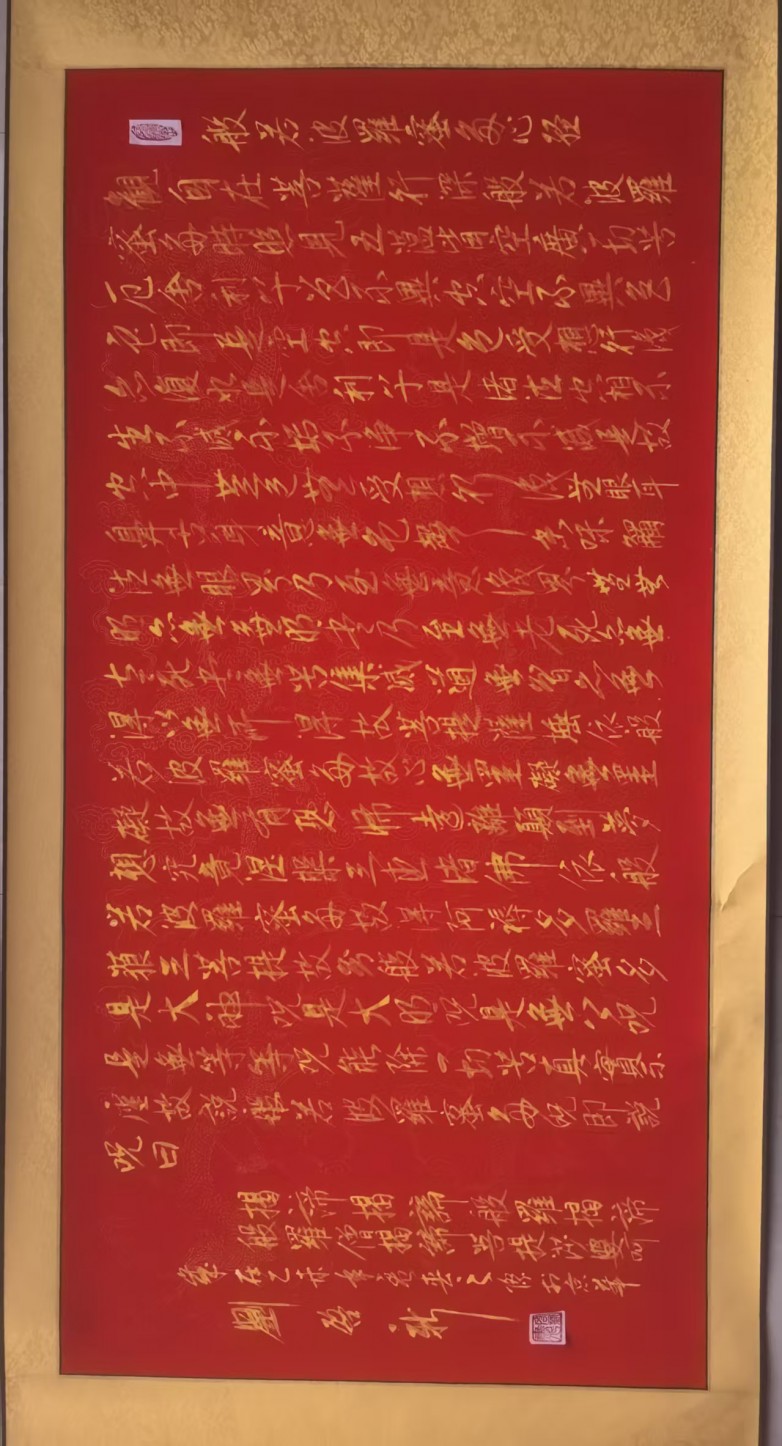 般若波羅蜜多心經
觀自在菩薩行深般若波羅
蜜多時照見五蘊皆空度一切苦
厄舍利子色不異空空不異色
色即是空空即是色受想行識
亦復如是舍利子是諸法空相不
生不滅不垢不淨不增不減是故
空中無色無受想行識無眼耳
鼻舌身意無色聲香味觸
法無眼界乃至無意識界無無
明亦無無明盡乃至無老死亦無
老死盡無苦集滅道無智亦無
得以無所得故菩提薩埵依般
若波羅蜜多故心無罣礙無罣
礙故無有恐怖遠離顛倒夢
想究竟涅槃三世諸佛依般
若波羅蜜多故得阿耨多羅三
藐三菩提故知般若波羅蜜多
是大神咒是大明咒是無上咒
是無等等咒能除一切苦真實不
虛故說般若波羅蜜多咒即說
咒曰
揭諦揭諦般羅揭諦
般羅僧揭諦菩提娑婆訶
歲在乙未年
劉